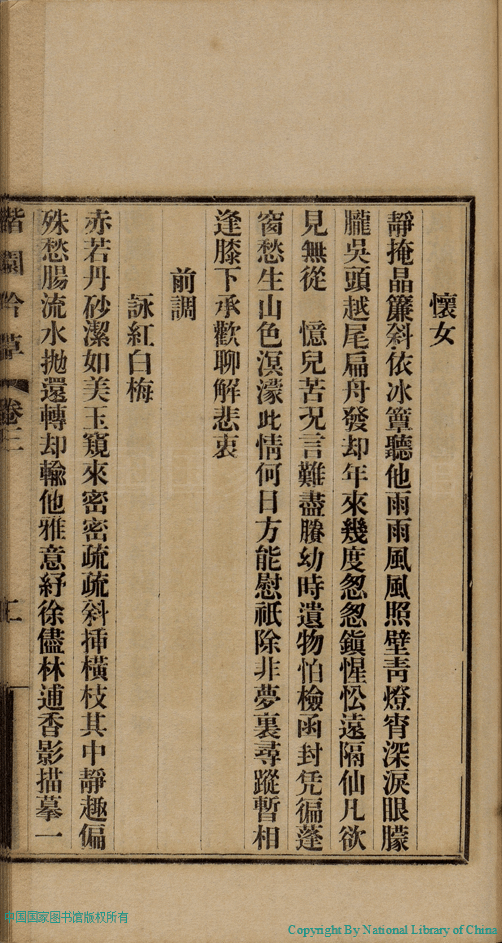 懷女
靜掩晶簾斜依冰簟聽他雨雨風風照壁靑燈宵深淚眼朦
朧吳頭越尾扁舟發却年來幾度怱怱鎭惺忪遠隔仙凡欲
見無從　憶兒苦况言難盡賸幼時遺物怕檢函封凭徧蓬
窗愁生山色溟濛此情何日方能慰祇除非夢裏尋蹤暫相
逢膝下承歡聊解悲衷
前調
詠紅白梅
赤若丹砂潔如美玉窺來密密疏疏斜揷橫枝其中靜趣偏
殊愁腸流水拋還轉却輸他雅意紓徐儘林逋香影描摹一
園吟草 卷
中国国家图书馆版权所有
Copyright By National Library of China